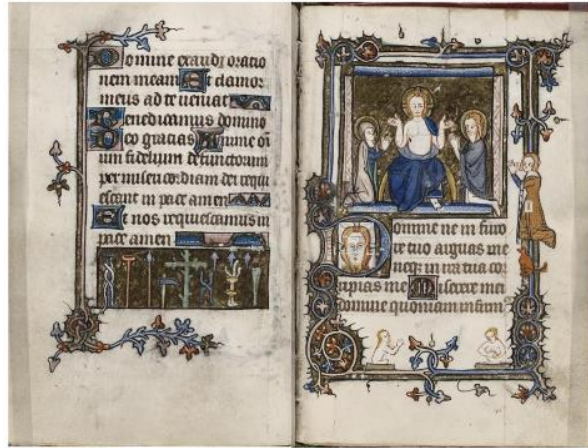 Domine exaudi oratio
nem meam Et clamor
meus ad te veniat
Benedicamus domino
Deo gracias Anime om
ium fidelium defunctorum
per misericordiam dei requi
escant in pace amen
Et nos requiescamus in
pace amen
Domine ne in furo
re tuo arguas me
neqz in ira tua cor
ripias me Miserere mei
domine quoniam infirm